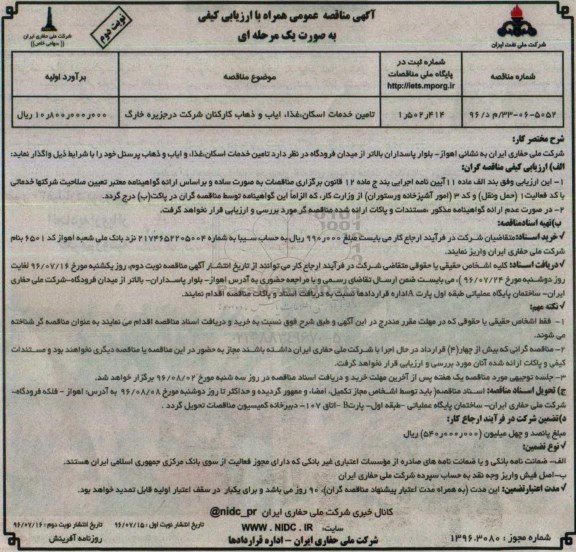 آگهی مناقصه عمومی همراه با ارزیابی کیفی
به صورت یک مرحله ای
نوبت دوم
شرکت ملی نفت ایران
شرکت ملی حفاری ایران
(( سهامی خاص ))
شماره مناقصه
شماره ثبت در پایگاه ملی مناقصات http://iets.mporg.ir
موضوع مناقصه
برآورد اولیه
۹۶/د م/۳۳-۰۶-۵۰۵۲
۱ر۵۰۲ر۴۱۴
تامین خدمات اسکان،غذا، ایاب و ذهاب کارکنان شرکت درجزیره خارگ
۱۰ر۸۰۰ر۰۰۰ر۰۰۰ ریال
شرح مختصر کار:
شرکت ملی حفاری ایران به نشانی اهواز- بلوار پاسداران بالاتر از میدان فرودگاه در نظر دارد تامین خدمات اسکان،غذا، و ایاب و ذهاب پرسنل خود را با شرایط ذیل واگذار نماید:
الف) ارزیابی کیفی مناقصه گران:
۱- این ارزیابی وفق بند الف ماده ۱۱آیین نامه اجرایی بند ج ماده ۱۲ قانون برگزاری مناقصات به صورت ساده و براساس ارائه گواهینامه معتبر تعیین صلاحیت شرکتها خدماتی
با کد فعالیت ۱ (حمل ونقل) و کد ۳ (امور آشپزخانه ورستوران) از وزارت کار، که الزاماً این گواهینامه توسط مناقصه گران در پاکت(ب) درج گردد.
۲- در صورت عدم ارائه گواهینامه مذکور ،مستندات و پاکات ارائه شده مناقصه گر مورد بررسی و ارزیابی قرار نخواهد گرفت.
ب)تهیه اسنادمناقصه:
√ خرید اسناد: متقاضیان شرکت در فرآیند ارجاع کار می بایست مبلغ ۹۹۰ر۰۰۰ ریال به حساب سیبا به شماره ۲۱۷۴۶۵۲۲۰۵۰۰۴ نزد بانک ملی شعبه اهواز کد ۶۵۰۱ بنام
شرکت ملی حفاری ایران واریز نمایند.
√ دریافت اسناد: کلیه اشخاص حقیقی یا حقوقی متقاضی شرکت در فرآیند ارجاع کار می توانند از تاریخ انتشار آگهی مناقصه نوبت دوم، روز یکشنبه مورخ ۹۶/۰۷/۱۶ لغایت
روز دوشنبه مورخ ۹۶/۰۷/۲۴ ، می بایست ضمن ارسال تقاضای رسمی و با مراجعه حضوری به آدرس اهواز- بلوار پاسداران- بالاتر از میدان فرودگاه-شرکت ملی حفاری
ایران- ساختمان پایگاه عملیاتی طبقه اول پارت ۸اداره قراردادها نسبت به دریافت اسناد و پاکات مناقصه اقدام نمایند.
√ نکته مهم:
۱- فقط اشخاص حقیقی یا حقوقی که در مهلت مقرر مندرج در این آگهی و طبق شرح فوق نسبت به خرید و دریافت اسناد مناقصه اقدام می نمایند به عنوان مناقصه گر شناخته
می شوند.
۲- مناقصه گرانی که بیش از چهار(۴) قرارداد در حال اجرا با شرکت ملی حفاری ایران داشته باشند مجاز به حضور در این مناقصه یا مناقصه دیگری نخواهند بود و مستندات
کیفی و پاکات ارائه شده آنان مورد بررسی و ارزیابی قرار نخواهد گرفت.
۳-جلسه توجیهی مورد مناقصه یک هفته پس از آخرین مهلت خرید و دریافت اسناد مناقصه در روز سه شنبه مورخ ۹۶/۰۸/۰۲ برگزار خواهد شد.
ج) تحویل اسناد مناقصه: اسناد مناقصه( باید توسط اشخاص مجاز تکمیل، امضاء و ممهور گردیده و حداکثر تا روز دوشنبه مورخ ۹۶/۰۸/۰۸ به آدرس: اهواز - فلکه فرودگاه-
شرکت ملی حفاری ایران- ساختمان پایگاه عملیاتی -طبقه اول- پارتB -اتاق ۱۰۷- دبیرخانه کمیسیون مناقصات تحویل گردد .
د)تضمین شرکت در فرآیند ارجاع کار:
مبلغ پانصد و چهل میلیون (۵۴۰ر۰۰۰ر۰۰۰) ریال
√ نوع تضمین:
الف- ضمانت نامه بانکی و یا ضمانت نامه های صادره از مؤسسات اعتباری غیر بانکی که دارای مجوز فعالیت از سوی بانک مرکزی جمهوری اسلامی ایران هستند.
ب-اصل فیش واریز وجه نقد به حساب سپرده شرکت ملی حفاری ایران
√ مدت اعتبارتضمین: این مدت (به همراه مدت اعتبار پیشنهاد مناقصه گران)، ۹۰ روز می باشد و برای یکبار در سقف اعتبار اولیه قابل تمدید خواهد بود.
کانال خبری شرکت ملی حفاری ایران @nidc_pr
سایت: WWW . NIDC . IR
شرکت ملی حفاری ایران – اداره قراردادها
شماره مجوز : ۱۳۹۶،۳۰۸۰
تاریخ انتشار نوبت اول : ۹۶/۰۷/۱۵ تاریخ انتشار نوبت دوم : ۹۶/۰۷/۱۶
روزنامه آفرینش